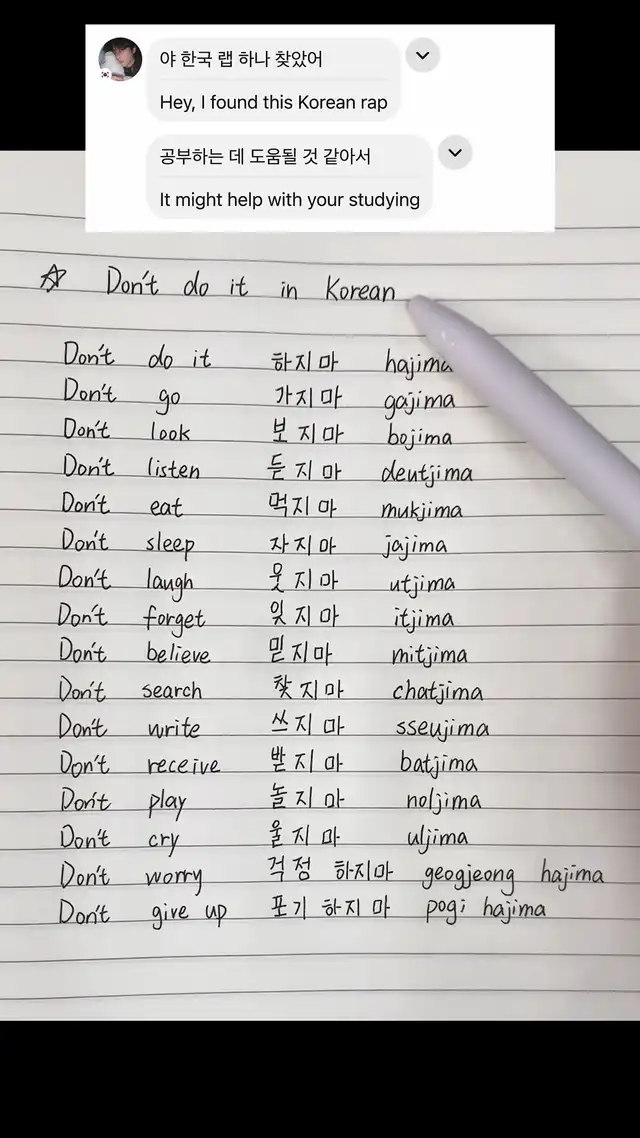 야 한국 랩 하나 찾았어
Hey, I found this Korean rap
공부하는 데 도움될 것 같아서
It might help with your studying
☆ Don't do it in Korean
Don't do it 하지마 hajima
Don't go 가지마 gajima
Don't look 보지마 bojima
Don't listen 듣지마 deutjima
Don't eat 먹지마 mukjima
Don't sleep 자지마 jajima
Don't laugh 웃지마 utjima
Don't forget 잊지마 itjima
Don't believe 믿지마 mitjima
Don't search 찾지마 chatjima
Don't write 쓰지마 sseujima
Don't receive 받지마 batjima
Don't play 놀지마 noljima
Don't cry 울지마 uljima
Don't worry 걱정 하지마 geogjeong hajima
Don't give up 포기 하지마 pogi hajima